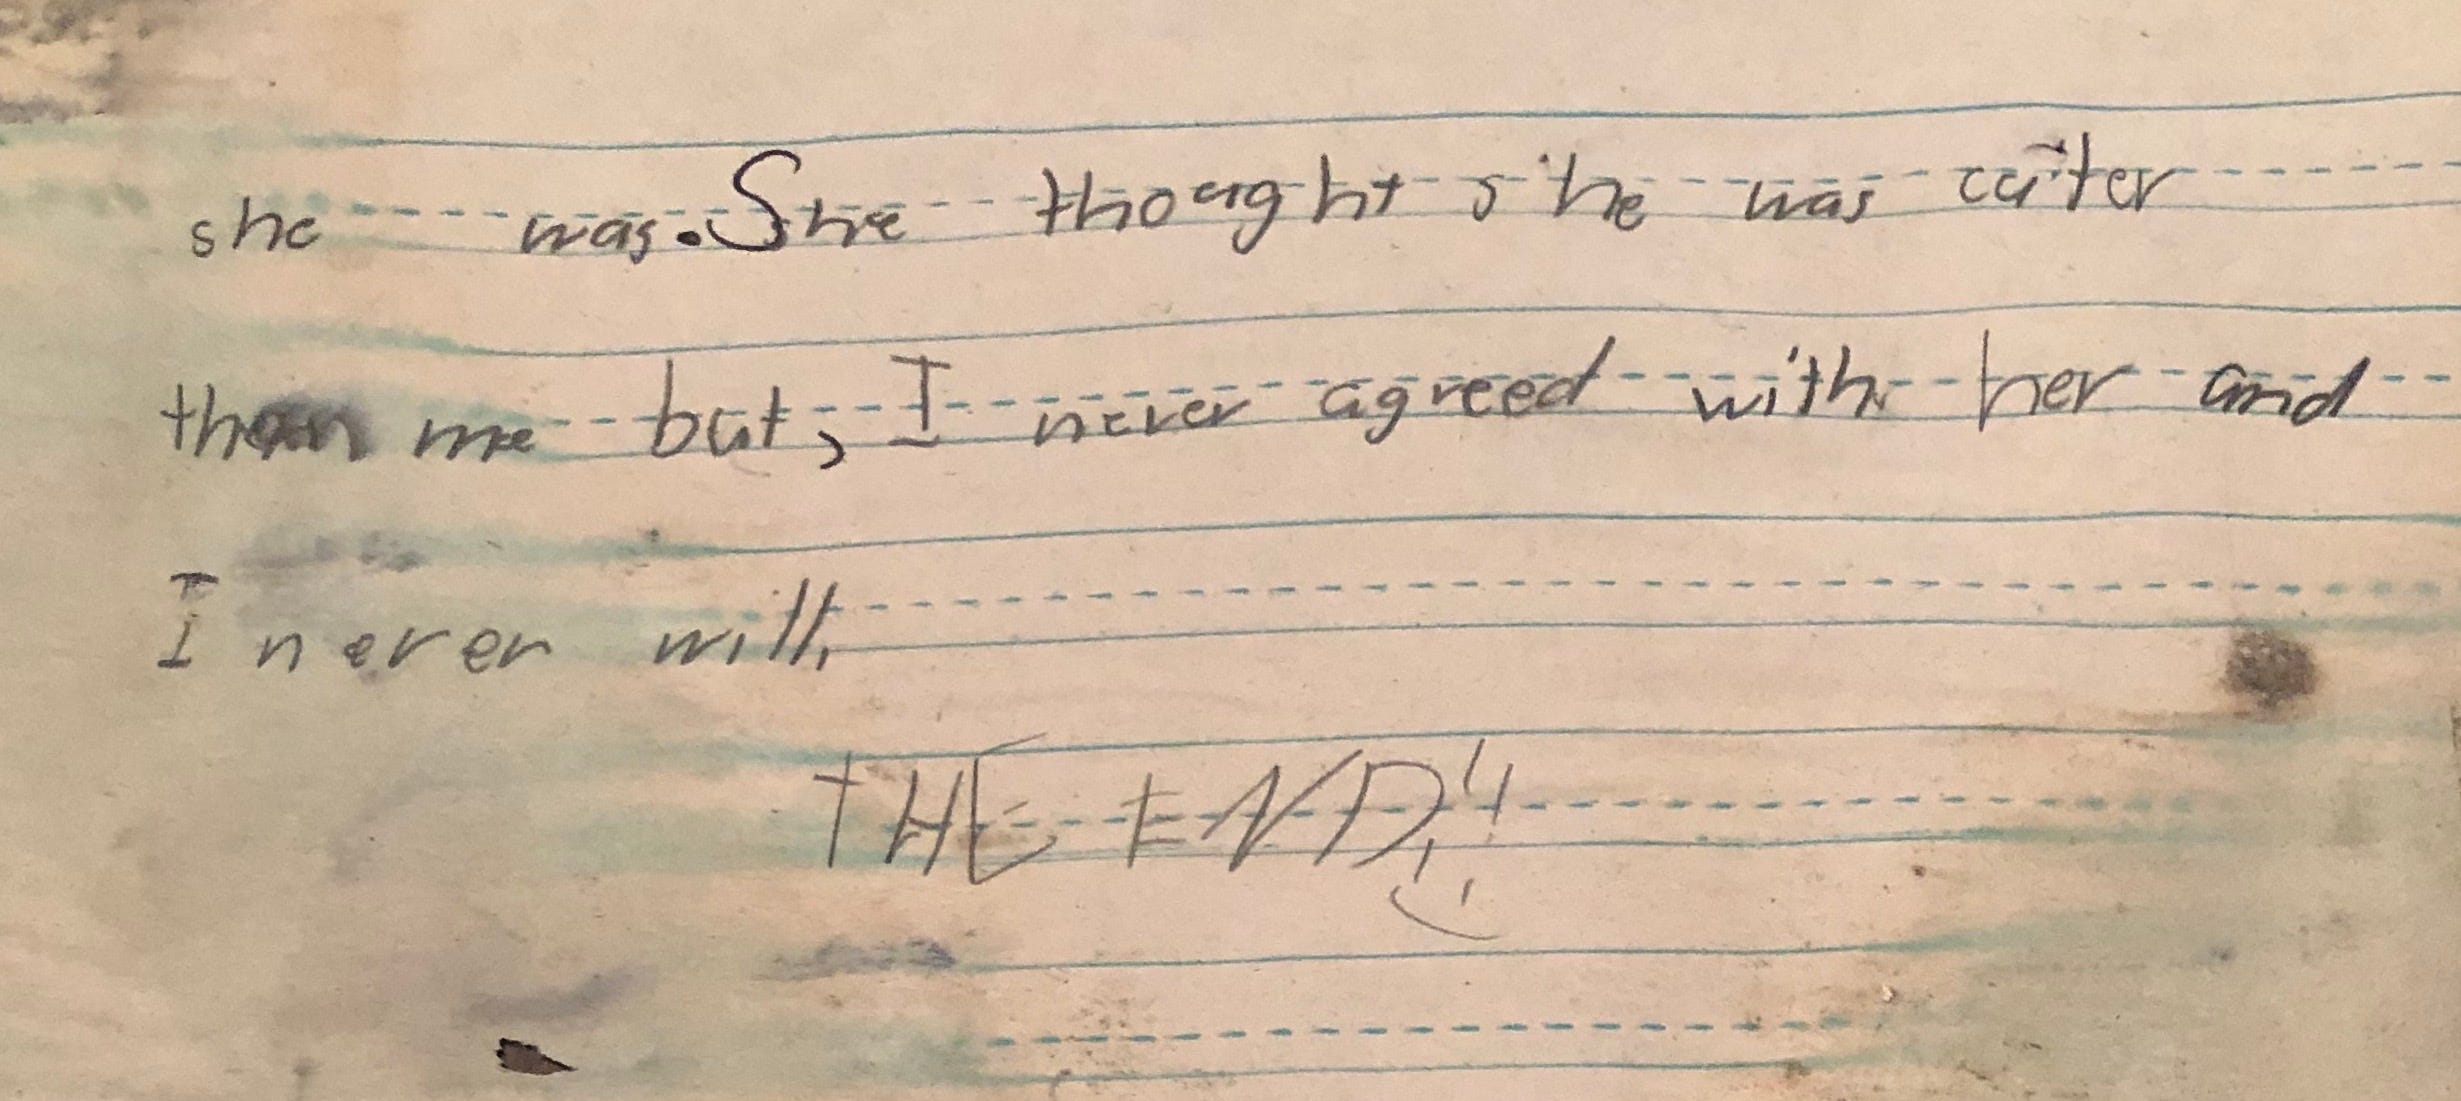 she was. She thought she was cuter
than me but, I never agreed with her and
I never will.
THE END!!